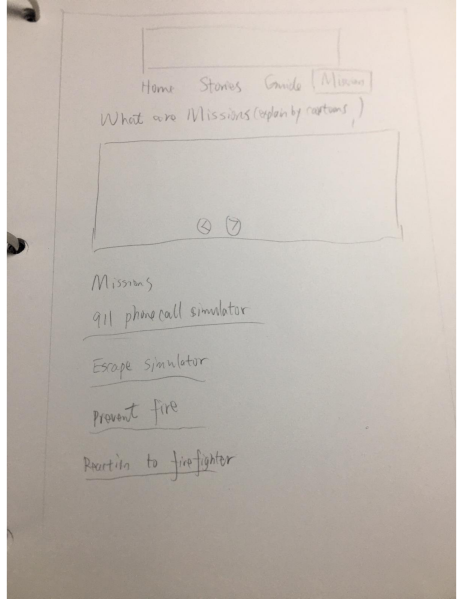 Home Stories Guide Missions
What are Missions (explain by cartoons)
Missions
911 phone call simulator
Escape simulator
Prevent fire
Reaction to firefighter